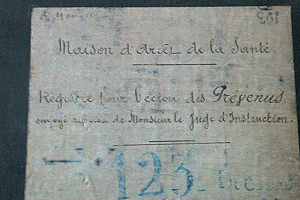 Maison d'Arrêt de la Santé
Registre pour l'écrou des Prévenus
de Monsieur le Juge d'Instruction.
123